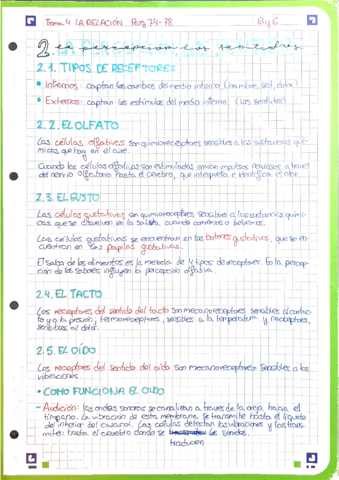 Tema 4 LA RELACIÓN. Pag 74-78 ByG
2. La percepción. Los sentidos
2.1. TIPOS DE RECEPTORES
• Internos: captan los cambios del medio interno (hambre, sed, dolor)
• Externos: captan los estímulos del medio interno. (Los sentidos)
2.2. EL OLFATO
Las células olfativas son quimiorreceptores sensibles a las sustancias quí-
micas que hay en el aire.
Cuando las células olfativas son estimuladas envían impulsos nerviosos a través
del nervio olfatorio hasta el cerebro, que interpreta e identifica el olor.
2.3. EL GUSTO
Las células gustativas son quimiorreceptores sensibles a las sustancias quími-
cas que se disuelven en la saliva, cuando comemos o bebemos.
Las células gustativas se encuentran en los botones gustativos, que se en-
cuentran en las papilas gustativas.
El sabor de los alimentos es la mezcla de 4 tipos de receptores. En la percep-
ción de los sabores influyen la percepción olfativa.
2.4. EL TACTO
Los receptores del sentido del tacto son mecanorreceptores sensibles al contac-
to y a la presión; termorreceptores, sensibles a la temperatura y nociceptores,
sensibles al dolor.
2.5. EL OÍDO
Los receptores del sentido del oído son mecanorreceptores sensibles a las
vibraciones.
• COMO FUNCIONA EL OIDO
- Audición: las ondas sonoras se canalizan a través de la oreja hacia el
tímpano. La vibración de esta membrana se transmite hasta el líquido
del interior del caracol. Las células detectan las vibraciones y las trans-
miten hasta el cerebro donde se los sonidos.
traducen